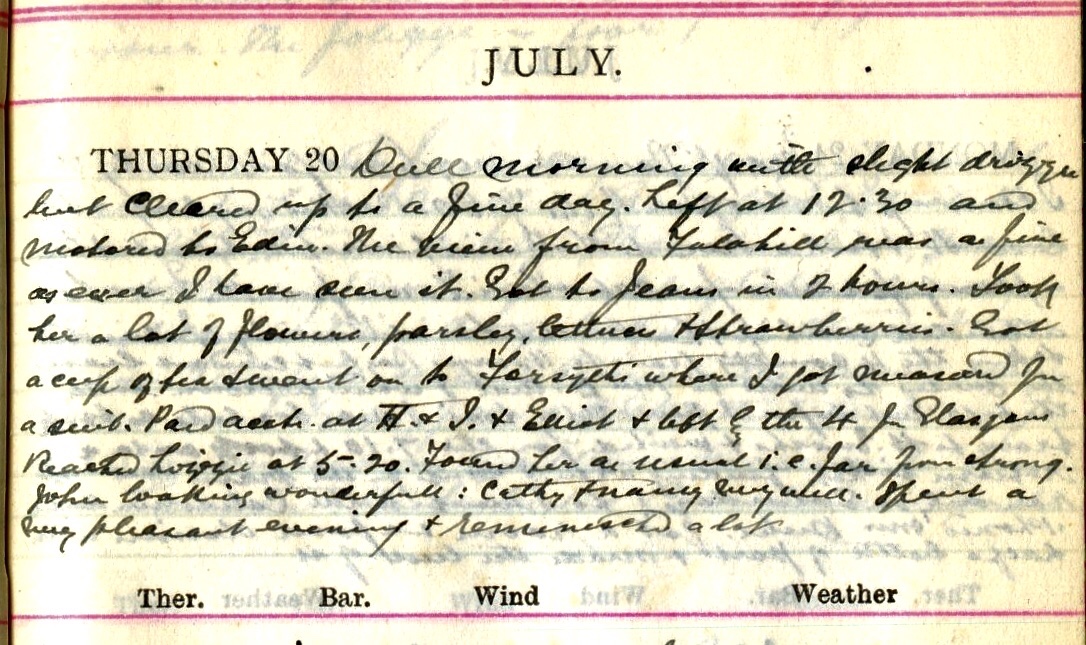 JULY.
THURSDAY 20 Dull morning with slight drizzle
but cleared up to a fine day. Left at 12.30 and
motored to Edin. The view from Falahill was as fine
as ever I have seen it. Got to Jeans in 2 hours. Took
her a lot of flowers, parsley, lettuce & strawberries. Got
a cup of tea & went on to Forsyths where I got measured for
a suit. Paid accts. at H. & I. & Elliot & left by the 4 for Glasgow
Reached Lizzie at 5.20. Found her as usual i.e. far from strong.
John looking wonderfull: Cathy & nancy very well. Spent a
very pleasant evening & reminisced a lot
Ther. Bar. Wind Weather